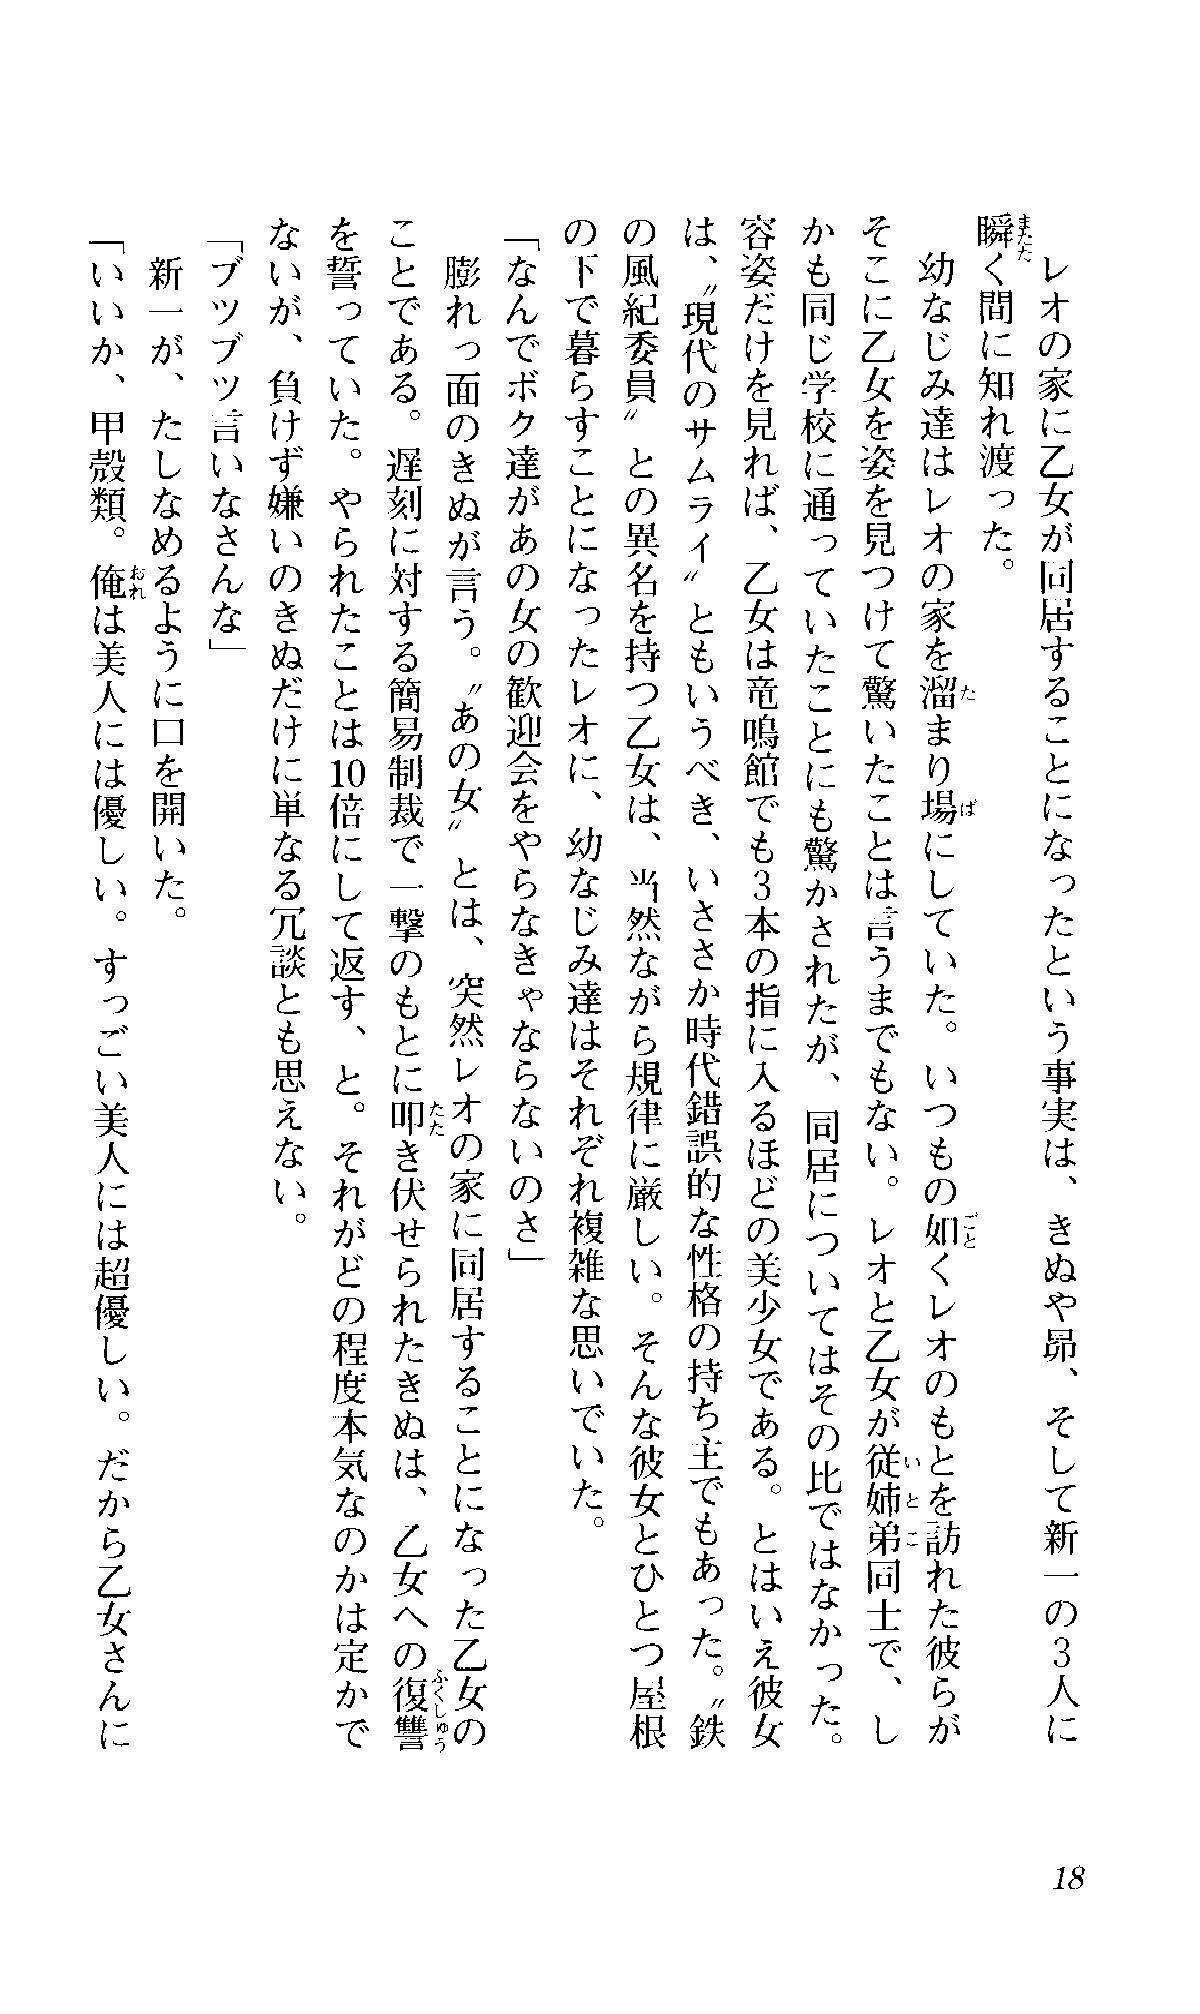 レオの家に乙女が同居することになったという事実は、きぬや昴、そして新一の3人に
瞬く間に知れ渡った。
幼なじみ達はレオの家を溜まり場にしていた。いつもの如くレオのもとを訪れた彼らが
そこに乙女を姿を見つけて驚いたことは言うまでもない。レオと乙女が従姉弟同士で、し
かも同じ学校に通っていたことにも驚かされたが、同居についてはその比ではなかった。
容姿だけを見れば、乙女は竜鳴館でも3本の指に入るほどの美少女である。とはいえ彼女
は、〝現代のサムライ〟ともいうべき、いささか時代錯誤的な性格の持ち主でもあった。〝鉄
の風紀委員〟との異名を持つ乙女は、当然ながら規律に厳しい。そんな彼女とひとつ屋根
の下で暮らすことになったレオに、幼なじみ達はそれぞれ複雑な思いでいた。
「なんでボク達があの女の歓迎会をやらなきゃならないのさ」
膨れっ面のきぬが言う。〝あの女〟とは、突然レオの家に同居することになった乙女の
ことである。遅刻に対する簡易制裁で一撃のもとに叩き伏せられたきぬは、乙女への復讐
を誓っていた。やられたことは10倍にして返す、と。それがどの程度本気なのかは定かで
ないが、負けず嫌いのきぬだけに単なる冗談とも思えない。
「ブツブツ言いなさんな」
新一が、たしなめるように口を開いた。
「いいか、甲殻類。俺は美人には優しい。すっごい美人には超優しい。だから乙女さんに
18